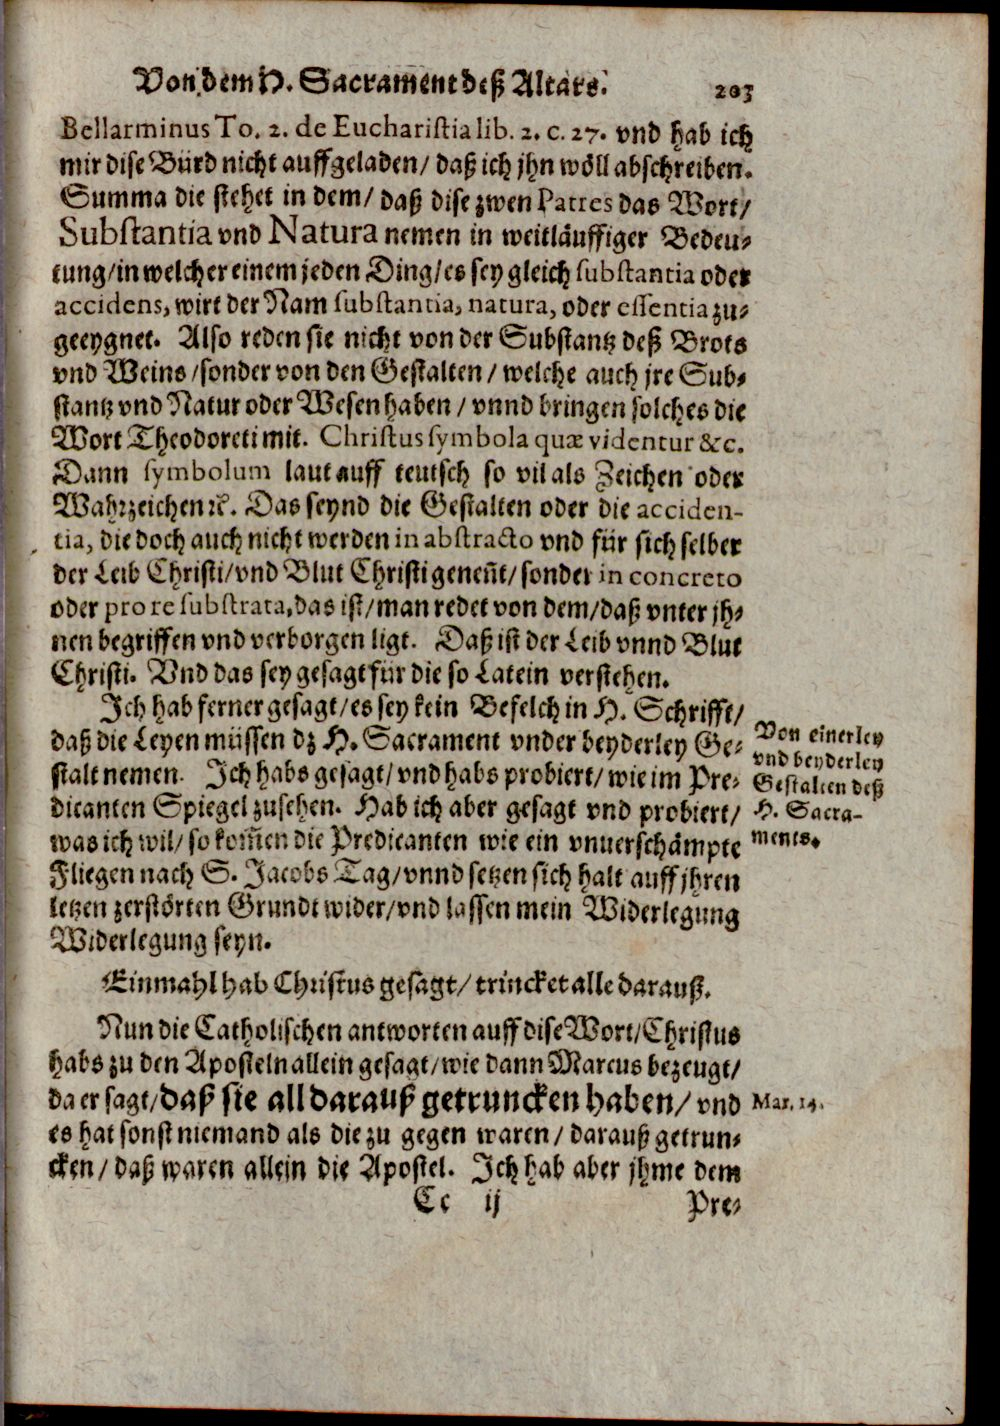 Von dem H. Sacrament deß Altars. 203
Bellarminus To. 2. de Eucharistia lib. 2. c. 27. vnd hab ich
mir dise Bürd nicht auffgeladen/ daß ich jhn wöll abschreiben.
Summa die stehet in dem/ daß dise zwen Patres das Wort/
Substantia vnd Natura nemen in weitläuffiger Bedeu-
tung/ in welcher einem jeden Ding/ es sey gleich substantia oder
accidens, wirt der Nam substantia, natura, oder essentia zu-
geeygnet. Also reden sie nicht von der Substantz deß Brots
vnd Weins/ sonder von den Gestalten/ welche auch jre Sub-
stantz vnd Natur oder Wesen haben/ vnnd bringen solches die
Wort Theodoreti mit. Christus symbola quæ videntur &c.
Dann symbolum laut auff teutsch so vil als Zeichen oder
Wahrzeichen ꝛc. Das seynd die Gestalten oder die acciden-
tia, die doch auch nicht werden in abstracto vnd für sich selber
der Leib Christi/ vnd Blut Christi geneñt/ sonder in concreto
oder pro re substrata, das ist/ man redet von dem/ daß vnter jh-
nen begriffen vnd verborgen ligt. Daß ist der Leib vnnd Blut
Christi. Vnd das sey gesagt für die so Latein verstehen.
Ich hab ferner gesagt/ es sey kein Befelch in H. Schrifft/
daß die Leyen müssen dz H. Sacrament vnder beyderley Ge-
stalt nemen. Ich habs gesagt/ vnd habs probiert/ wie im Pre-
dicanten Spiegel zusehen. Hab ich aber gesagt vnd probiert/
was ich wil/ so kom̃en die Predicanten wie ein vnuerschämpte
Fliegen nach S. Jacobs Tag/ vnnd setzen sich halt auff jhren
letzen zerstörten Grundt wider/ vnd lassen mein Widerlegung
Widerlegung seyn.
Von einerley
vnd beyderley
Gestalten deß
H. Sacra-
ments.
Einmahl hab Christus gesagt/ trincket alle darauß.
Nun die Catholischen antworten auff dise Wort/ Christus
habs zu den Aposteln allein gesagt/ wie dann Marcus bezeugt/
da er sagt/ daß sie all darauß getruncken haben/ vnd
Mar. 14.
es hat sonst niemand als die zu gegen waren/ darauß getrun-
cken/ daß waren allein die Apostel. Ich hab aber jhme dem
Cc ij Pre-